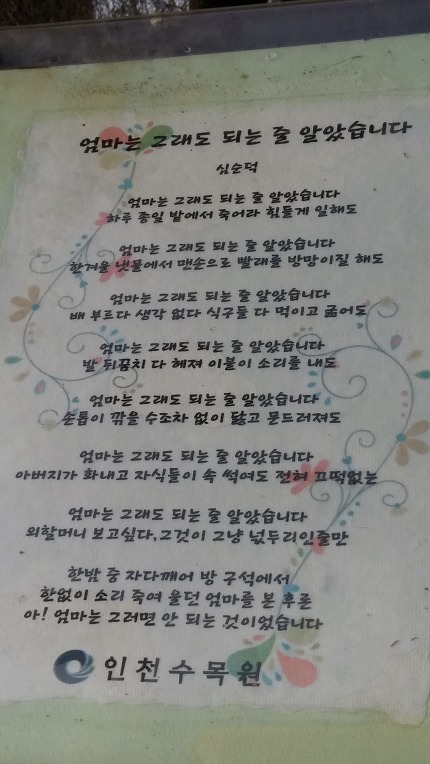 엄마는 그래도 되는 줄 알았습니다
심순덕
엄마는 그래도 되는 줄 알았습니다
하루 종일 밭에서 죽어라 힘들게 일해도
엄마는 그래도 되는 줄 알았습니다
한겨울 냇물에서 맨손으로 빨래를 방망이질 해도
엄마는 그래도 되는 줄 알았습니다
배 부르다 생각 없다 식구들 다 먹이고 굶어도
엄마는 그래도 되는 줄 알았습니다
발 뒤꿈치 다 헤져 이불이 소리를 내도
엄마는 그래도 되는 줄 알았습니다
손톱이 깎을 수조차 없이 닳고 문드러져도
엄마는 그래도 되는 줄 알았습니다
아버지가 화내고 자식들이 속 썩여도 전혀 끄떡없는
엄마는 그래도 되는 줄 알았습니다
외할머니 보고싶다,그것이 그냥 넋두리인줄만
한밤 중 자다깨어 방 구석에서
한없이 소리 죽여 울던 엄마를 본 후론
아! 엄마는 그러면 안 되는 것이었습니다
인천수목원